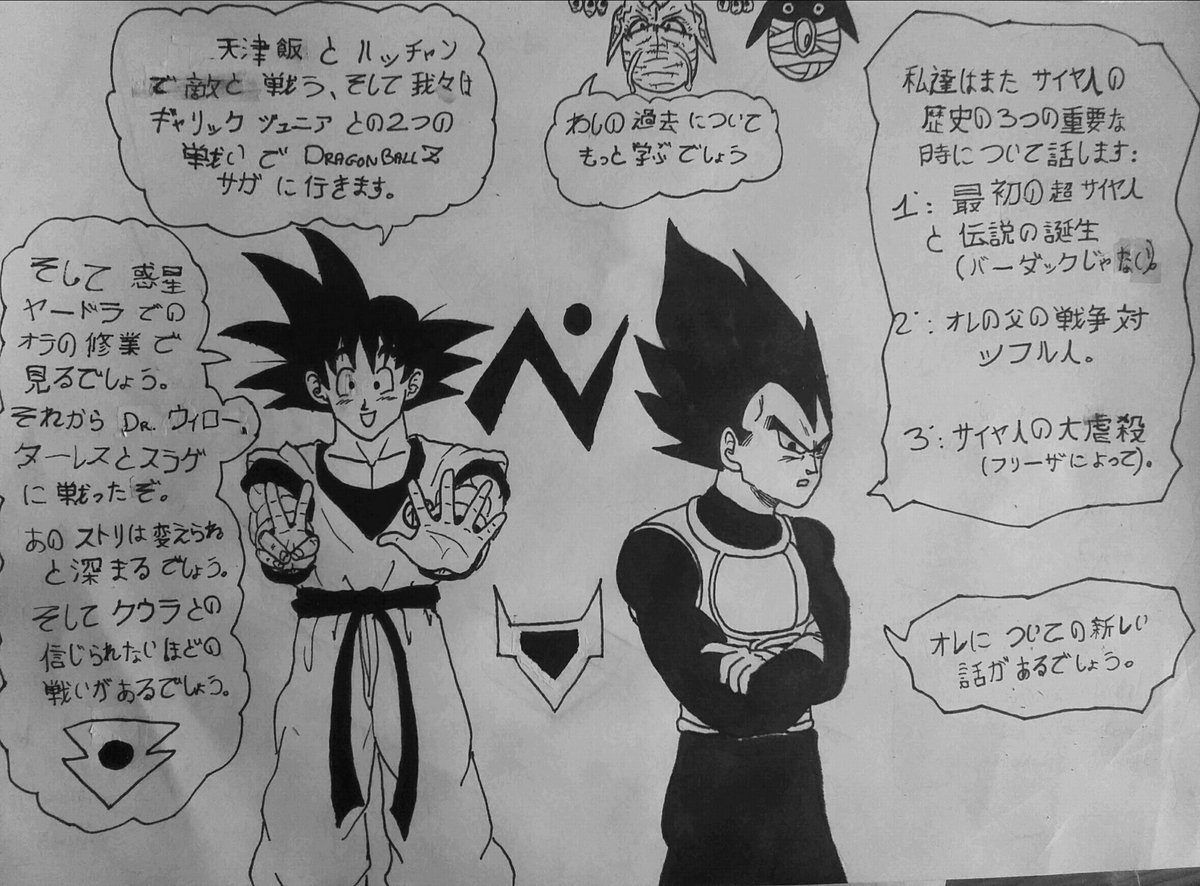 天津飯 と ハッチャン
で 敵と 戦う、そして 我々は
ギャリック ヅュニア との2つの
戦い で DRAGON BALL Z
サガ に 行きます。
わしの 過去 について
もっと 学ぶ でしょう
私達はまた サイヤ人の
歴史の3つの重要な
時について 話します:
1: 最初の超サイヤ人
と 伝説の誕生
(バーダックじゃない)。
2: オレの父の戦争対
ツフル人。
3: サイヤ人の大虐殺
(フリーザによって)。
そして 惑星
ヤードラ での
オラの修業で
見るでしょう。
それから DR. ウィロー、
ターレスとスラゲ
に 戦ったぞ。
あの ストリは変えられ
と 深まるでしょう。
そして クウラとの
信じられないほどの
戦いがあるでしょう。
オレに ついての新しい
話があるでしょう。